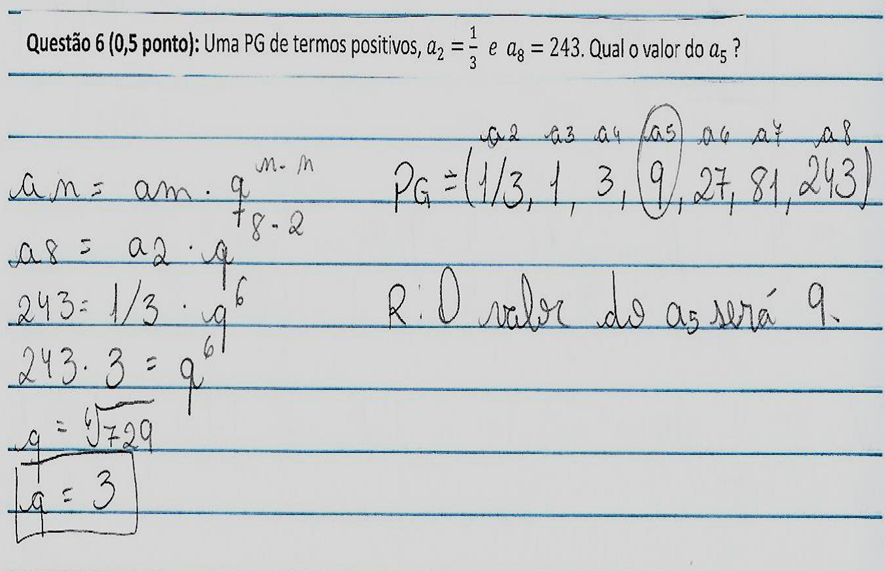 Questão 6 (0,5 ponto): Uma PG de termos positivos, a₂ = 1/3 e a₈ = 243. Qual o valor do a₅ ?
an = am · q^n-m
a8 = a2 · q^8-2
243 = 1/3 · q^6
243 · 3 = q^6
q = ⁶√729
q = 3
a2 a3 a4 a5 a6 a7 a8
PG = (1/3, 1, 3, 9, 27, 81, 243)
R: O valor do a5 será 9.